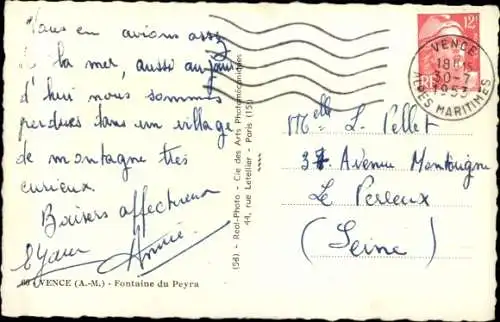 Nous en avions assez
de la mer, aussi aujour
d'hui nous sommes
perdues dans un village
de montagne très
curieux.
Baisers affectueux
Annie
60 - VENCE (A.-M.) - Fontaine du Peyra
(56) - Real-Photo - Cie des Arts Photomécaniques
44, rue Letellier - Paris (15)
12F
RF
VENCE
18H15
30-7
1953
ALPES MARITIMES
Melle L. Pellet
37 Avenue Montaigne
Le Perreux
(Seine)